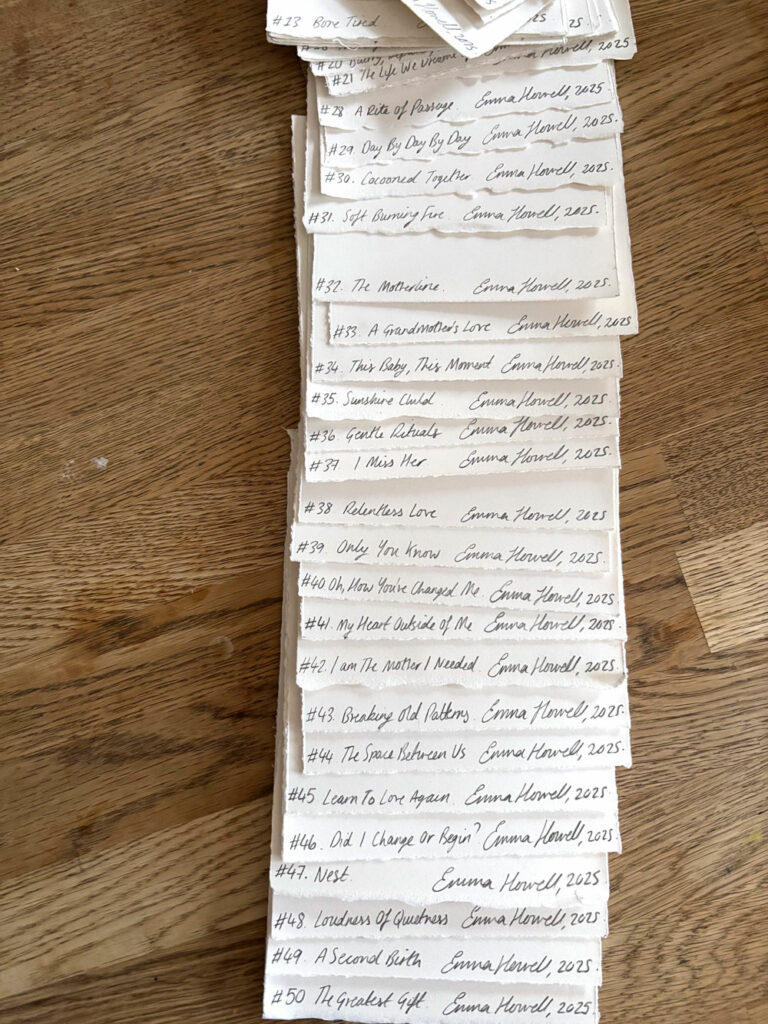 #23 Bone Tired
Howell, 2025
2025
#20 Bunny,
#21 The Life We Dreamed Howell, 2025
#28 A Rite of Passage. Emma Howell, 2025
#29 Day By Day By Day Emma Howell, 2025.
#30. Cocooned Together Emma Howell, 2025.
#31. Soft Burning Fire. Emma Howell, 2025.
#32. The Motherline. Emma Howell, 2025.
#33. A Grandmother's Love Emma Howell, 2025
#34. This Baby, This Moment Emma Howell, 2025.
#35. Sunshine Child. Emma Howell, 2025
#36. Gentle Rituals Emma Howell, 2025.
#37. I Miss Her Emma Howell, 2025.
#38 Relentless Love Emma Howell, 2025
#39. Only You Know Emma Howell, 2025.
#40. Oh, How You've Changed Me. Emma Howell, 2025
#41. My Heart Outside of Me Emma Howell, 2025
#42. I am The Mother I Needed. Emma Howell, 2025.
#43. Breaking Old Patterns. Emma Howell, 2025.
#44 The Space Between Us Emma Howell, 2025.
#45 Learn To Love Again. Emma Howell, 2025.
#46. Did I Change Or Begin? Emma Howell, 2025.
#47. Nest. Emma Howell, 2025
#48. Loudness Of Quietness Emma Howell, 2025.
#49. A Second Birth Emma Howell, 2025.
#50 The Greatest Gift. Emma Howell, 2025.